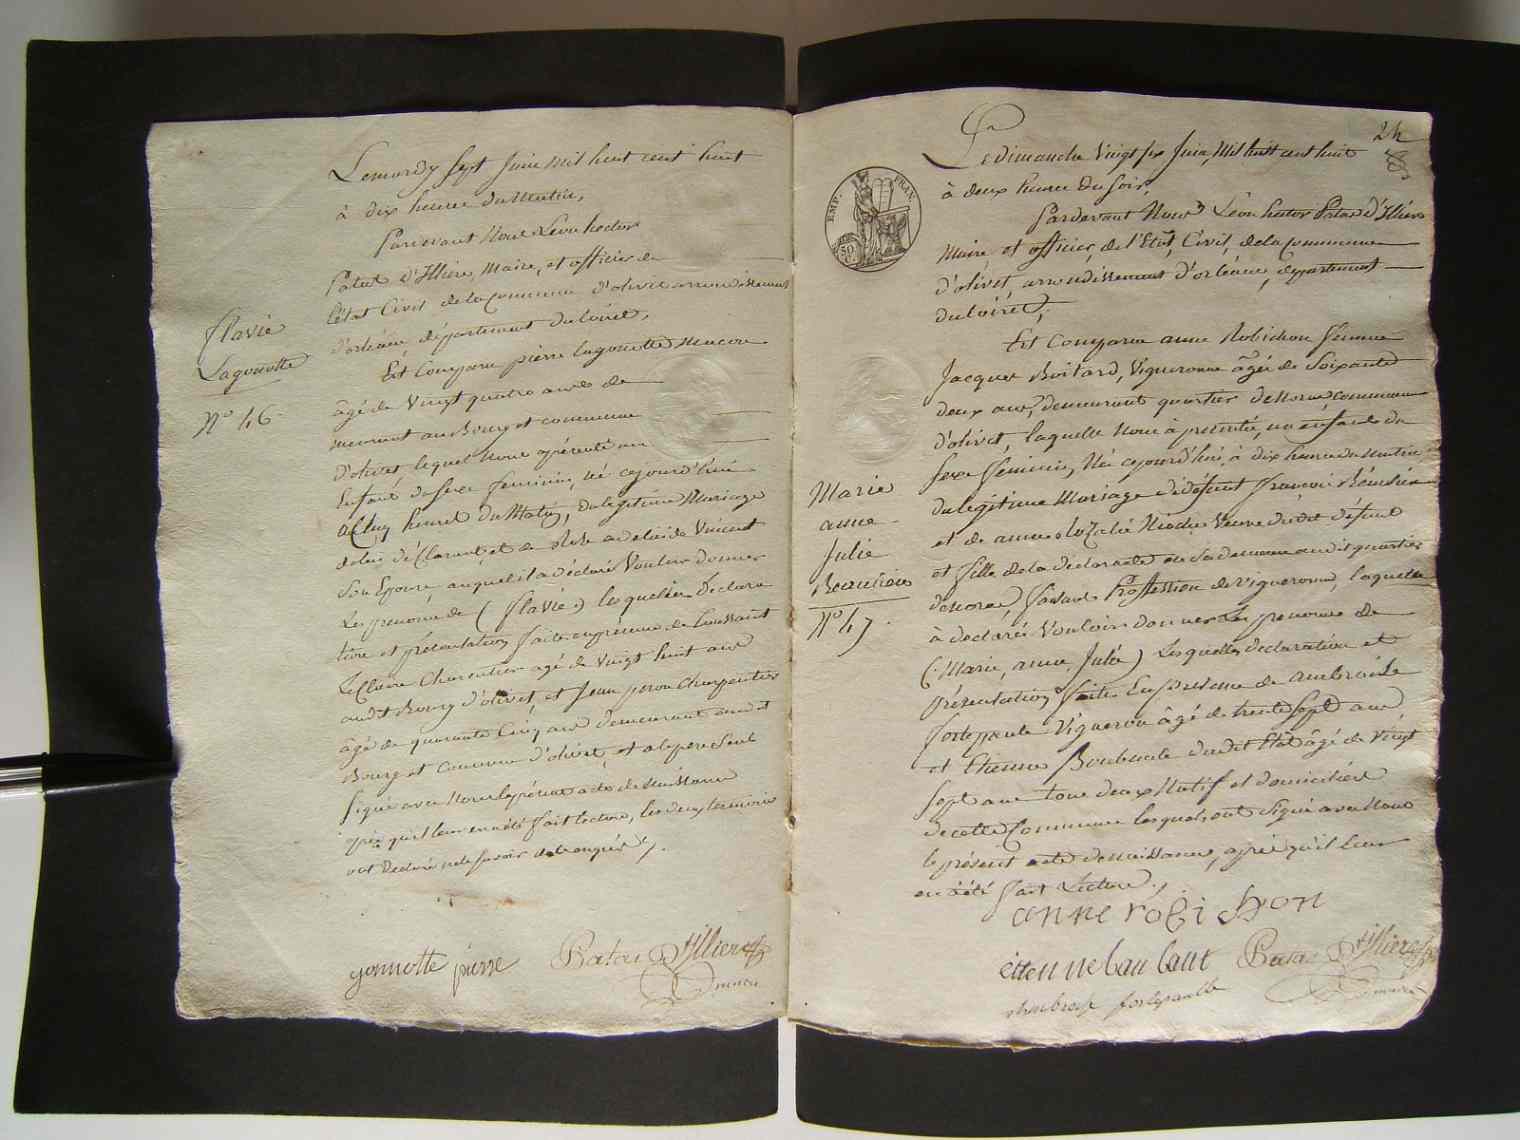 Le mardy sept Juin mil huit cent huit
à dix heures du matin,
Pardevant Nous Léon hector
Patas d'Illiers, Maire, et officier de
l'état Civil de la Commune d'olivet arrondissement
d'orléans, département du Loiret,
Est Comparu pierre lagonotte macon
âgé de Vingt quatre ans de
meurant au Bourg et commune
d'olivet lequel Nous a présenté un
Enfant de sexe féminin, né cejourd'hui
à Cinq heures du Matin, du légitime Mariage
de lui déclarant et de Vincent
Son Epouse, auquel il a déclaré Vouloir donner
Les prenoms de (flavie) les quelles déclara
tion et présentation faite en présence de Toussaint
LeClerc Charentier agé de vingt huit ans
audit Bourg d'olivet, et Jean peron Charpentier
âgé de quarante Cinq ans demeurant audit
Bourg et commune d'olivet, et a le pere Seul
signé avec Nous le présent acte de Naissance
après qu'il leur en a été fait lecture, les deux temoins
ont déclaré ne le savoir de ce enquis.
flavie
Lagonotte
N° 46
gonnotte pierre
Patas d'Illiers
maire
24
EMP. FRAN.
50
Le dimanche Vingt six Juin Mil huit cent huit
à deux heures du soir,
Pardevant Nous Léon hector Patas d'Illiers
Maire et officier de l'Etat Civil, de la Commune
d'olivet, arrondissement d'orléans, département
du loiret,
Est Comparu anne Robichon femme
Jacques Boitard, Vigneronne âgée de Soixante
deux ans, demeurant quartier de commune
d'olivet, laquelle Nous a présenté, un enfant du
sexe féminin, Né cejourd'hui, à dix heures du matin
du légitime Mariage de défunt françois Beaudoin
et de anne Veuve dudit défunt
et fille de la déclarante en sa demeure audit quartier
faisant Proffession de Vigneronne, laquelle
à déclaré Vouloir donner les prenoms de
(Marie, anne, Julie) Lesquelles declaration et
présentation faites En présence de ambroise
fortepaule Vigneron âgé de trente sept ans
et Etienne dudit Etat âgé de Vingt
sept ans tous deux Natif et domiciliés
de cette Commune lesquels ont signé avec Nous
le présent acte de naissance, après qu'il leur
en a été fait Lecture,
Marie
anne
Julie
N° 47
anne robichon
etienne baubaut
Patas d'Illiers
ambroise fortepaulle
maire